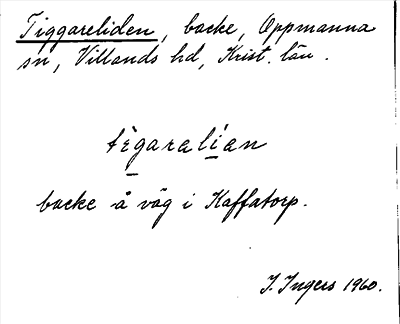 Tiggareliden, backe, Oppmanna
sn, Villands hd, Krist. län.
tègaralían
backe å väg i Kaffatorp.
I. Ingers 1960.